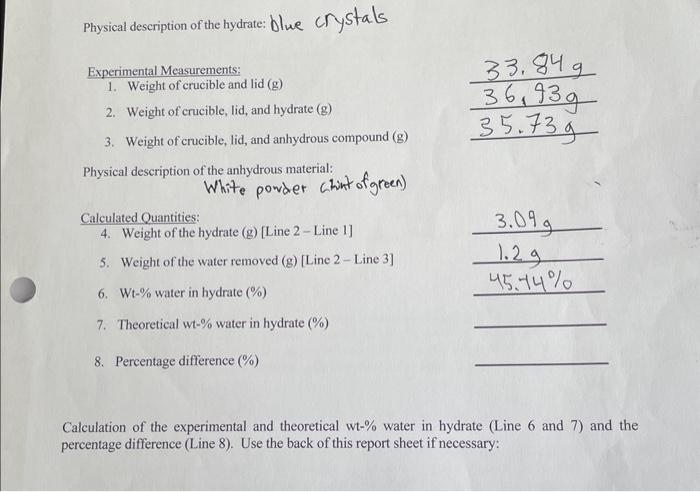 Physical description of the hydrate: blue crystals
Experimental Measurements:
1. Weight of crucible and lid (g) 33.84 g
2. Weight of crucible, lid, and hydrate (g) 36.93g
3. Weight of crucible, lid, and anhydrous compound (g) 35.73 g
Physical description of the anhydrous material:
White powder (hint of green)
Calculated Quantities:
4. Weight of the hydrate (g) [Line 2 – Line 1] 3.09 g
5. Weight of the water removed (g) [Line 2 – Line 3] 1.2 g
6. Wt-% water in hydrate (%) 45.74%
7. Theoretical wt-% water in hydrate (%)
8. Percentage difference (%)
Calculation of the experimental and theoretical wt-% water in hydrate (Line 6 and 7) and the
percentage difference (Line 8). Use the back of this report sheet if necessary: